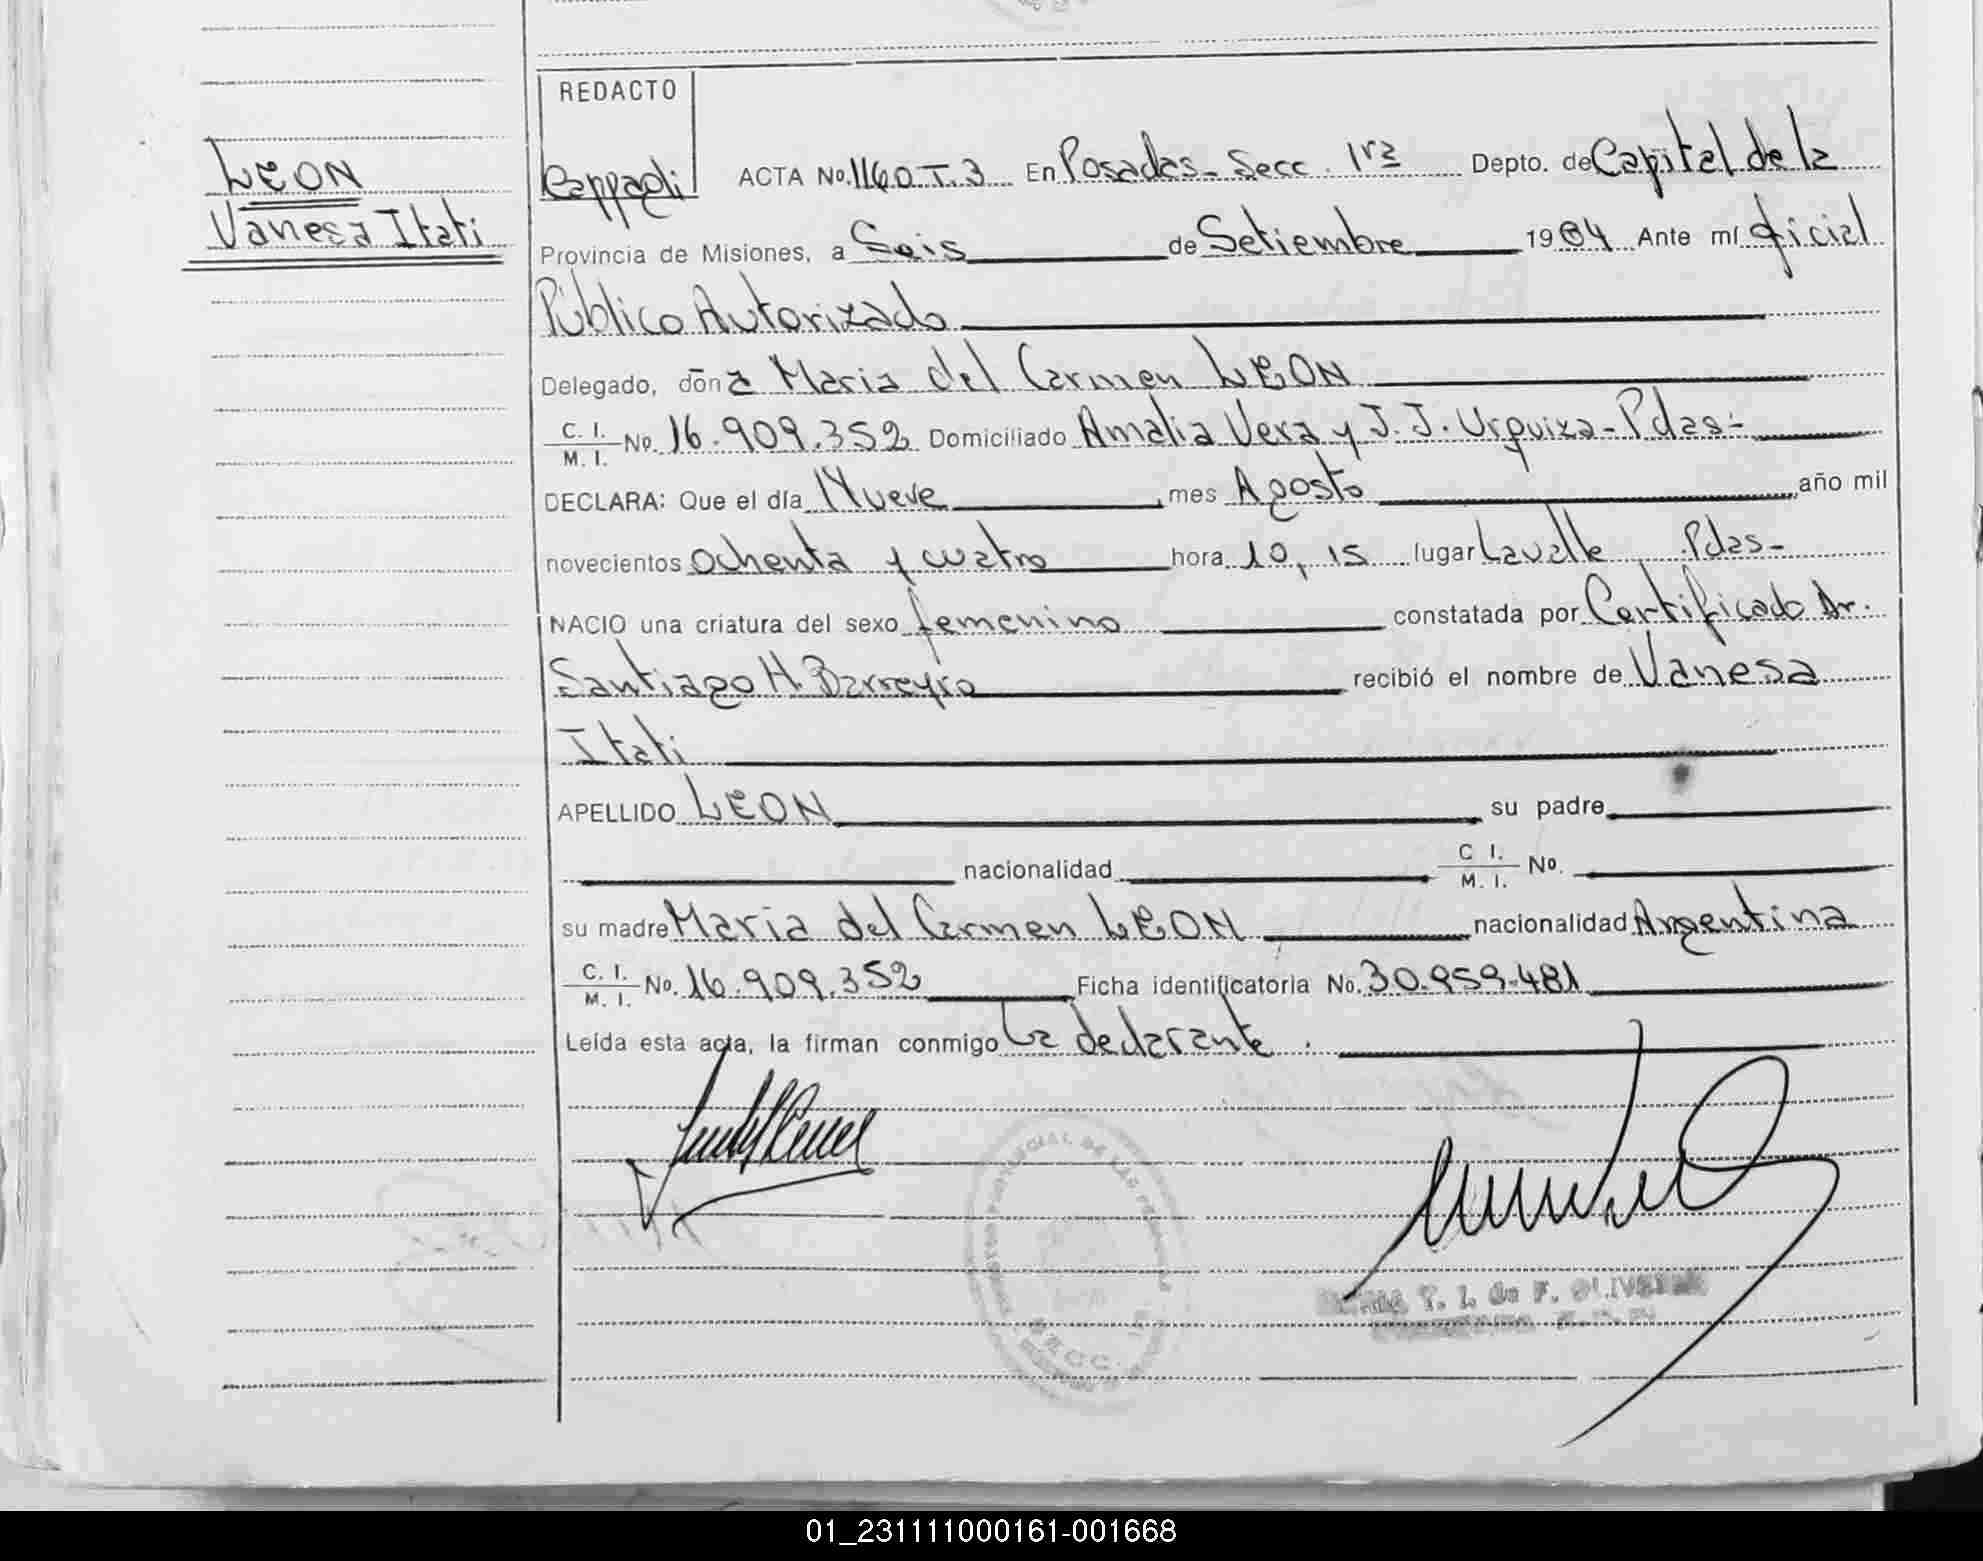 REDACTO
LEON
Vanesa Itati
Cappagli ACTA No. 1160 T. 3 En Posadas - Secc. 1ra Depto. de Capital de la
Provincia de Misiones, a Seis de Setiembre 1984 Ante mí oficial
Público Autorizado
Delegado, doña Maria del Carmen LEON
C. I. / M. I. No. 16.909.352 Domiciliado Amalia Vera y J. J. Urquiza - Pdas -
DECLARA: Que el día Nueve mes Agosto año mil
novecientos ochenta y cuatro hora 10,15 lugar Lavalle Pdas -
NACIO una criatura del sexo femenino constatada por Certificado Dr.
Santiago H. Barreyro recibió el nombre de Vanesa
Itati
APELLIDO LEON su padre
nacionalidad C I. / M. I. No.
su madre Maria del Carmen LEON nacionalidad Argentina
C. I. / M. I. No. 16.909.352 Ficha identificatoria No. 30.959.481
Leída esta acta, la firman conmigo La declarante.
T. I. de F. OLIVEIRA
SECC.
01_231111000161-001668